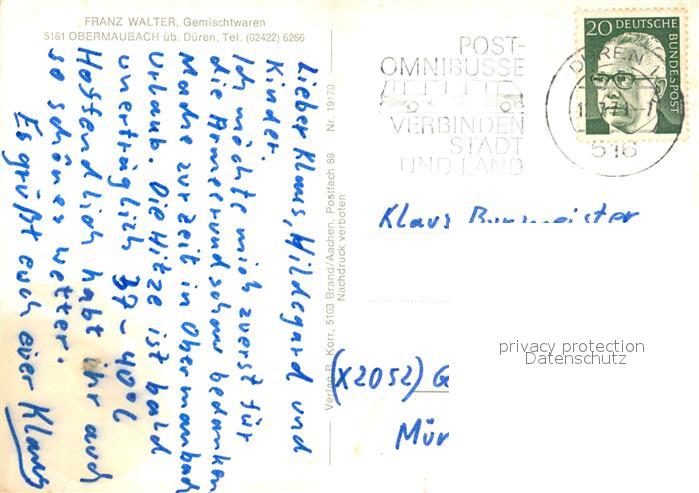 FRANZ WALTER, Gemischtwaren
5161 OBERMAUBACH üb. Düren, Tel. (02422) 6266
Lieber Klaus, Hildegard und
Kinder.
Ich möchte mich zuerst für
die Armeerundschau bedanken
Mache zur Zeit in Obermaubach
Urlaub. Die Hitze ist bald
unerträglich 37-40°C
Hoffendlich habt ihr auch
so schönes wetter.
Es grüßt euch euer Klaus
Verlag B. Korr, 5103 Brand/Aachen, Postfach 89 Nr. 19170
Nachdruck verboten
POST-
OMNIBUSSE
VERBINDEN
STADT
UND LAND
DÜREN
516
20 DEUTSCHE BUNDESPOST
Klaus
(X2052) G
Mün
privacy protection
Datenschutz